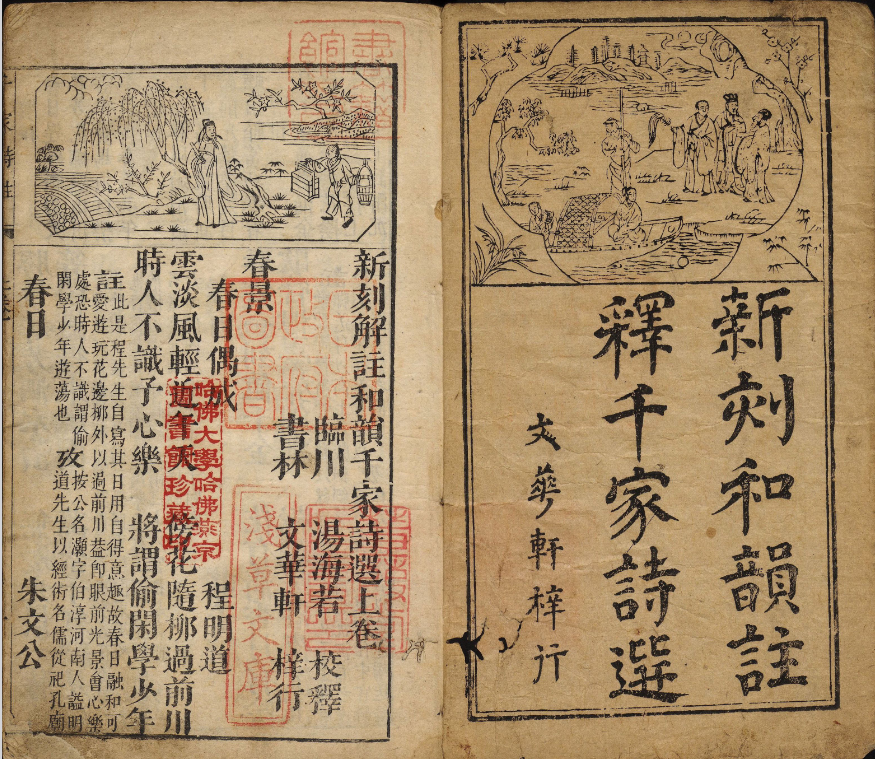 新刻和韻註
釋千家詩選
文華軒梓行
新刻解註和韻千家詩選上卷
臨川 湯海若 校釋
書林 文華軒 梓行
春景
春日偶成 程明道
雲淡風輕近午天 傍花隨柳過前川
時人不識予心樂 將謂偷閑學少年
註此是程先生自寫其日用自得意趣故春日融和可
愛遊玩花邊柳外以過前川益即眼前光景會心樂
處恐時人不識謂偷
閑學少年遊蕩也
攷按公名灝字伯淳河南人謚明
道先生以經術名儒從祀孔廟
春日 朱文公
淺草文庫
日本
政府
圖書
哈佛大學哈佛燕京
圖書館珍藏印